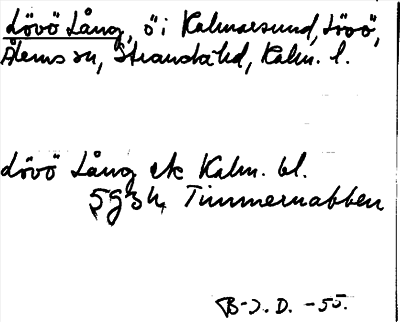 Lövö Lång, ö i Kalmarsund, Lövö,
Ålems sn, Stranda hd, Kalm. l.
Lövö Lång ek Kalm. bl.
5g3h, Timmernabben
B-J.D. -55.